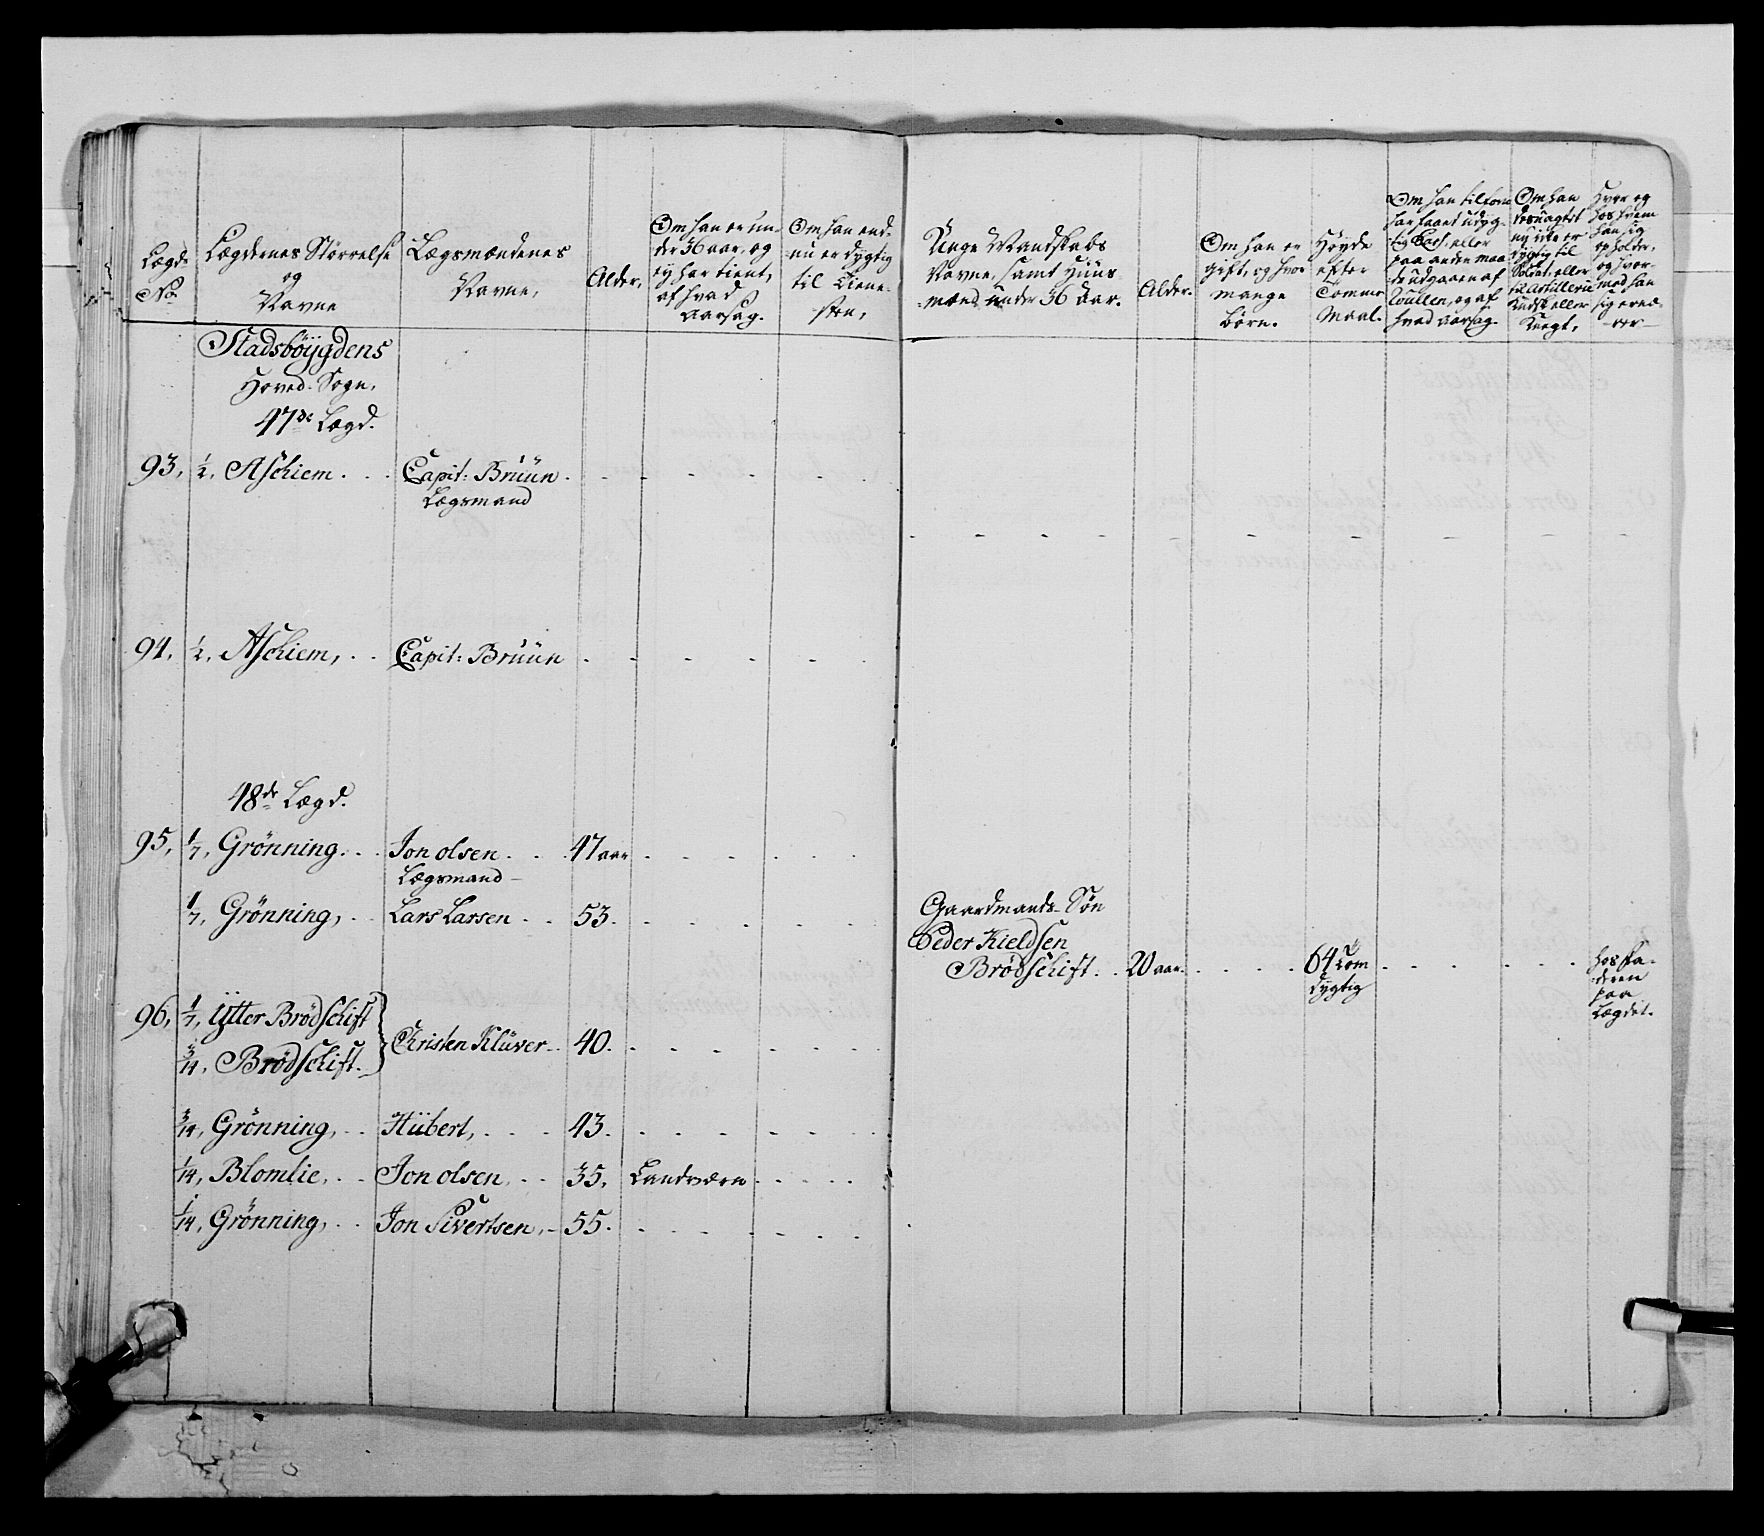 Lægd. Lægdernes Størrelse Lægsmændenes Alder.
No. og Navne Navne,
Om han er un-
der 36 aar, og
ej har tient,
af hvad
Aarsag.
Om han end-
nu er dygtig
til Tiene-
sten,
Unge Mandskabs
Navne, samt Huus-
mænd under 36 Aar.
Alder.
Om han er
gift, og hvor
mange
børn.
Høyde
efter
Tomme
Maal.
Om han tilforn
har faaet udyg-
tig Pass, eller
paa anden maa-
de udgaaen af
Roullen, og af
hvad aarsag.
Om han
desuagtet
nu ikke er
dygtig til
Soldat, eller
til Artillerie
Kudsk eller
Knegt,
Hvor og
hos hvem
han sig
opholder,
og hvor-
med han
sig ernæ-
rer
Stadsböygdens
Hoved-Sogn,
47de Lægd.
93, ½, Aschiem . . Capit: Brüün . - - - - -
Lægsmand
94, ½, Aschiem, . . Capit: Brüün - - - - -
48de Lægd.
95, 1/7, Grönning . . Jon olsen . . . 47 aar - - - - -
Lægsmand
1/7, Grönning, . . Lars Larsen . . 53. - - - - -
Gaardmands-Søn
Peder Kieldsen
Brödschift . . 20 aar. . . . 64 Tom . . . . . . hos Fa-
dygtig
deren
paa
Lægdet.
96, 1/7, Ÿtter Brödschift
3/14, Brödschift. Christen Klüver . . 40. - - - - -
3/14, Grönning, . . Hübert, . . . 43. - - - - -
1/14, Blomlie, . . Jon olsen, . . 35, Landværn . . . . .
1/14, Grönning, . . Jon Sivertsen, - 55. - - - - -